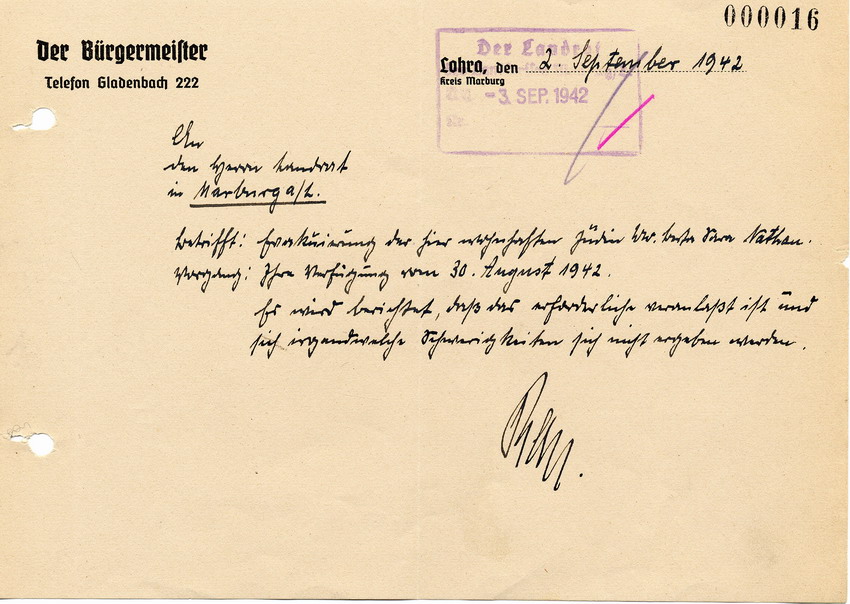 000016
Der Bürgermeister
Telefon Gladenbach 222
Der Landrat
Lohra, den 2. September 1942
Kreis Marburg
-3. SEP. 1942
An
den Herrn Landrat
in Marburg a/L.
Betrifft: Evakuierung der hier wohnhaften Jüdin Ww. Berta Sara Nathan.
Vorgang: Ihre Verfügung vom 30. August 1942.
Es wird berichtet, daß das erforderliche veranlaßt ist und
sich irgendwelche Schwierigkeiten sich nicht ergeben werden.